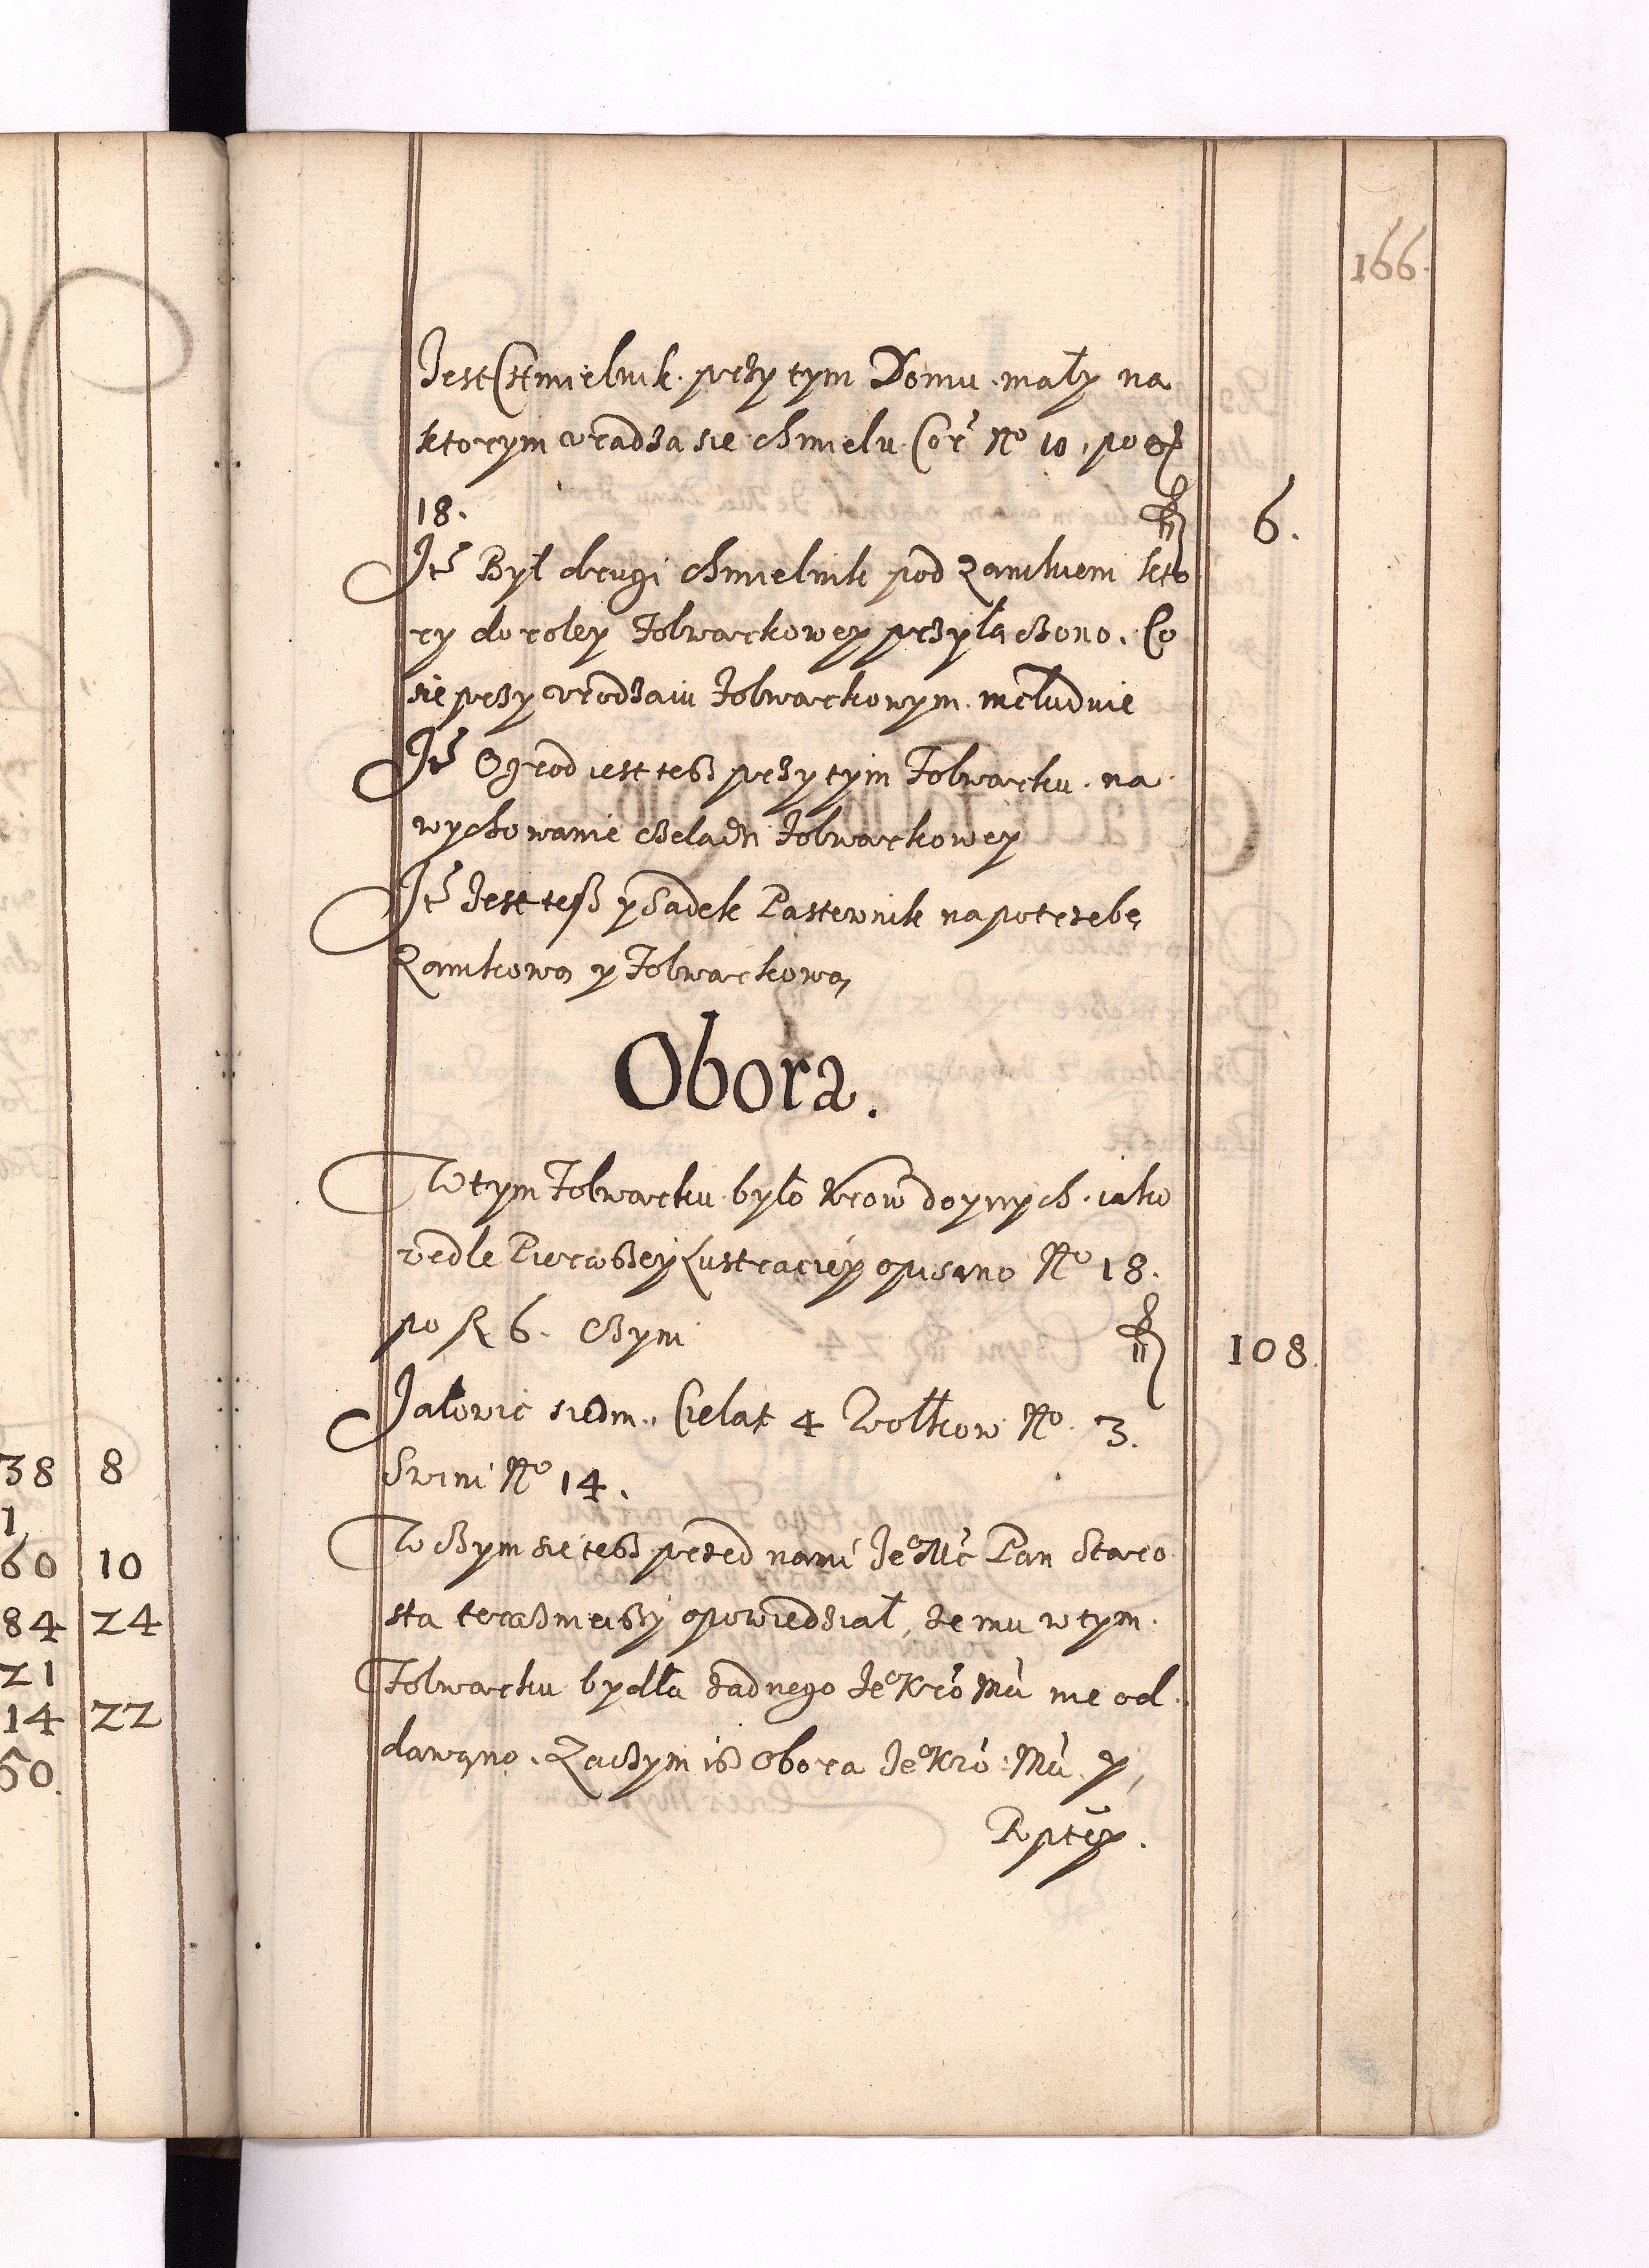 166.
Jest Chmielnik przy tym Domu mały na
ktorym vradza sie chmielu Cor. No 10, po gr
18. fl 6.
Itē Był drugi chmielnik pod Zamkiem kto
ry do roley Folwarkowey przyłączono. Co
sie przy vrodzaiu folwarkowym includuie
Itē Ogrod iest tesz przy tym Folwarku na
wychowanie czeladzi folwarkowey
Itē Jest tesz y Sadek Pastewnik na potrzebę
Zamkową y Folwarkową
Obora.
W tym Folwarku było krow doynych iako
vedle Pierwszey Lustraciey opisano No 18.
po fl 6. czyni fl 108.
Jałowic siedm. Cieląt 4 Wołkow No 3.
Swini No 14.
W czym sie tesz przed nami JeoMć Pan Staro
sta teraznieiszy opowiedział, że mu w tym
Folwarku bydła żadnego JeoKró Mći nie od
dawano. Zaczym isz Obora JeoKró Mći y
Rptēy.
38 8
1
60 10
84 24
21
14 22
50.